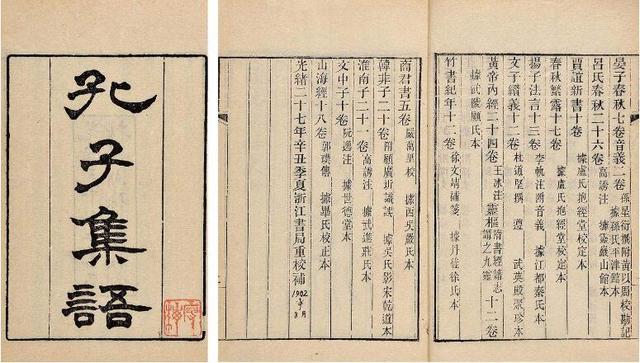 孔子集語
晏子春秋七卷音義二卷 孫星衍撰附黃以周校勘記 據孫氏平津館本
呂氏春秋二十六卷 高誘注 據靈巖山館本
賈誼新書十卷 據盧氏抱經堂校定本
春秋繁露十七卷 據盧氏抱經堂校定本
揚子法言十三卷 李軌注附音義 據江都秦氏本
文子纘義十二卷 杜道堅撰 遵 武英殿聚珍本
黃帝內經二十四卷 王冰注 靈樞 隋書經籍志謂之九靈 十二卷
據武陵顧氏本
竹書紀年十二卷 徐文靖補箋 據丹徒徐氏本
商君書五卷 嚴萬里校 據西吳嚴氏本
韓非子二十卷 附顧廣圻識誤 據吳氏影宋乾道本
淮南子二十一卷 高誘注 據武進莊氏本
文中子十卷 阮逸注 據世德堂本
山海經十八卷 郭璞傳 據畢氏校正本
光緒二十七年辛丑季夏浙江書局重校補 1902年 月